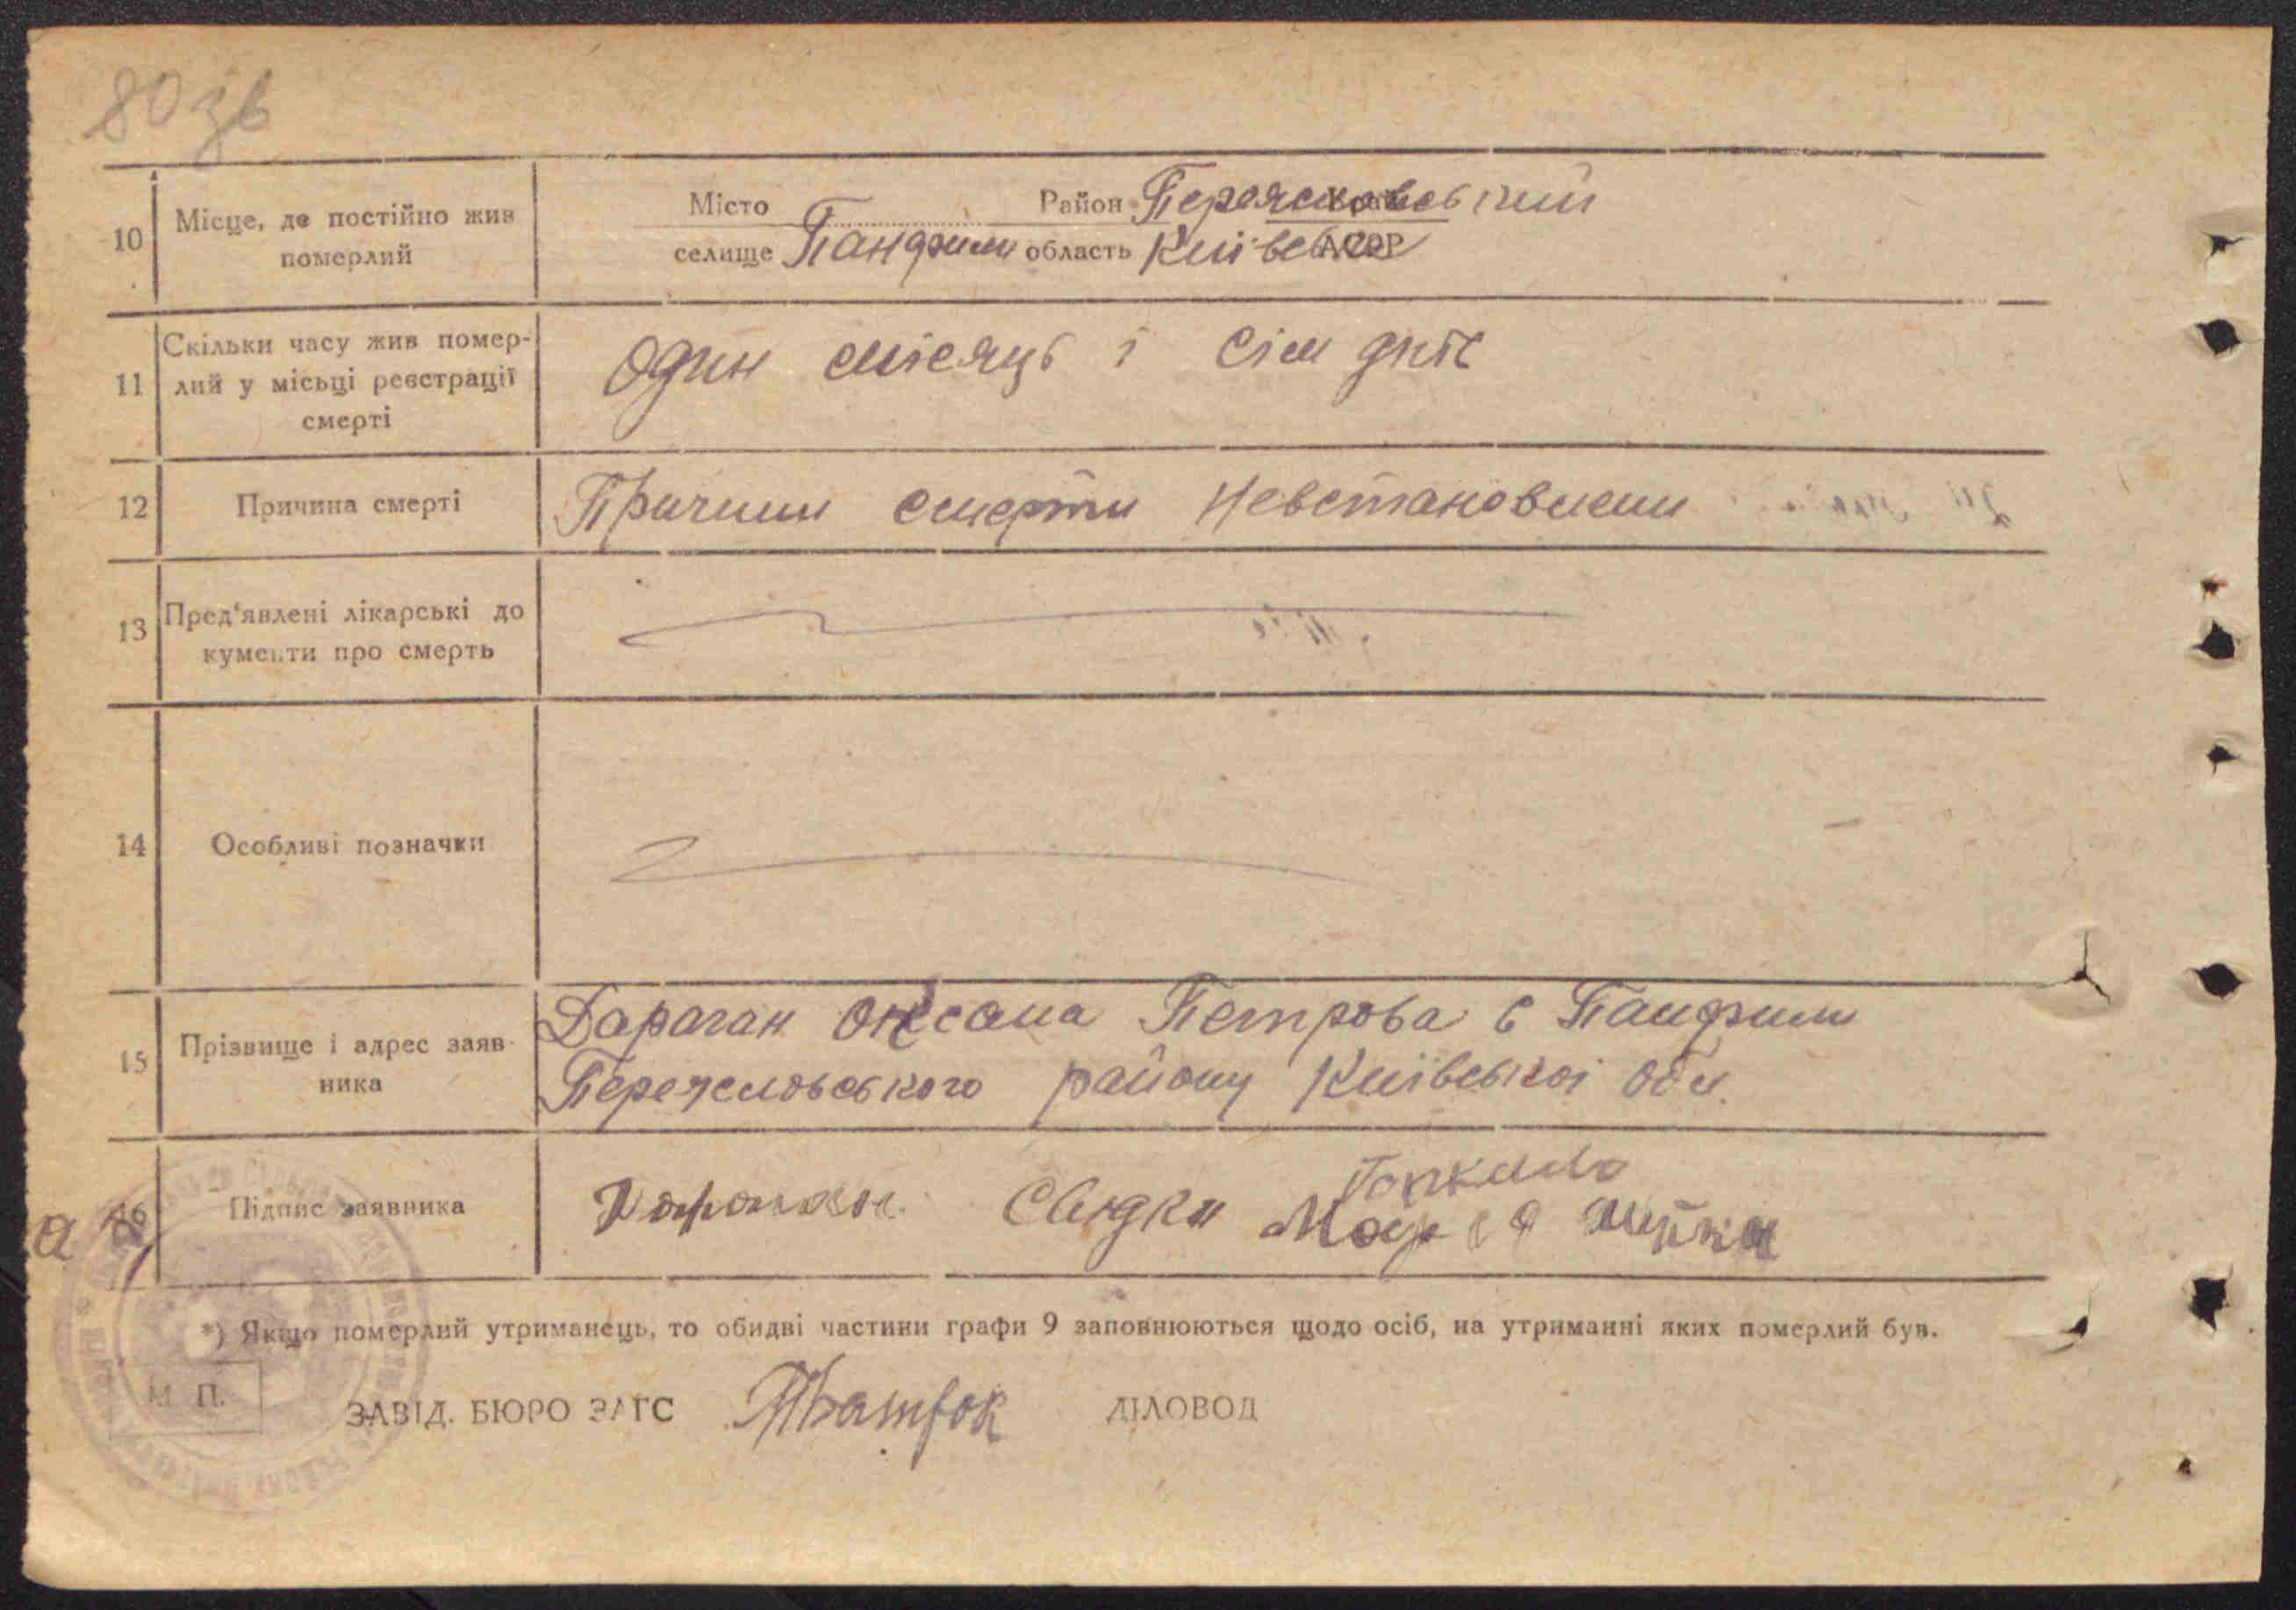 80 зв
10 Місце, де постійно жив померлий
Місто Район Переяславський Край
селище Панфили область Київська АСРР
11 Скільки часу жив помер-
лий у місьці реєстрації
смерті
Один місяць і сім днів
12 Причина смерті
Причини смерти невстановлени
13 Пред'явлені лікарські до
кументи про смерть
14 Особливі позначки
15 Прізвище і адрес заяв-
ника
Дараган Оксана Петрова с Панфили
Переяславського району Київської обл.
16 Підпис заявника
Дараган Свідки
*) Якщо померлий утриманець, то обидві частини графи 9 заповнюються щодо осіб, на утриманні яких померлий був.
М П.
ЗАВІД. БЮРО ЗАГС ДІЛОВОД